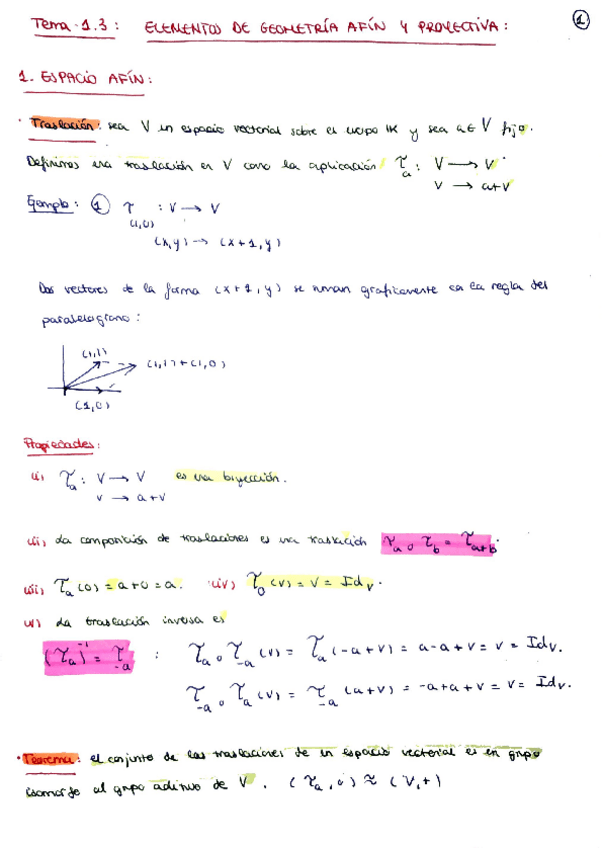 Tema 1.3 : ELEMENTOS DE GEOMETRÍA AFÍN Y PROYECTIVA :
1
1. ESPACIO AFÍN :
· Traslación : sea V un espacio vectorial sobre el cuerpo IK y sea a ∈ V fijo.
Definimos una traslación en V como la aplicación τ_a : V → V
v → a+v
Ejemplo : ① τ_(1,0) : V → V
(x,y) → (x+1,y)
Dos vectores de la forma (x+1,y) se suman graficamente con la regla del
paralelogramo :
(1,1)
(1,1)+(1,0)
(1,0)
Propiedades :
(i) τ_a : V → V es una biyección.
v → a+v
(ii) La composición de traslaciones es una traslación τ_a ∘ τ_b = τ_a+b.
(iii) τ_a(0) = a+0 = a. (iv) τ_0(v) = v = Id_V.
(v) La traslación inversa es
(τ_a)^-1 = τ_-a : τ_a ∘ τ_-a(v) = τ_a(-a+v) = a-a+v = v = Id_V.
τ_-a ∘ τ_a(v) = τ_-a(a+v) = -a+a+v = v = Id_V.
· Teorema : el conjunto de las traslaciones de un espacio vectorial es un grupo
isomorfo al grupo aditivo de V. (τ_a, ∘) ≈ (V,+)